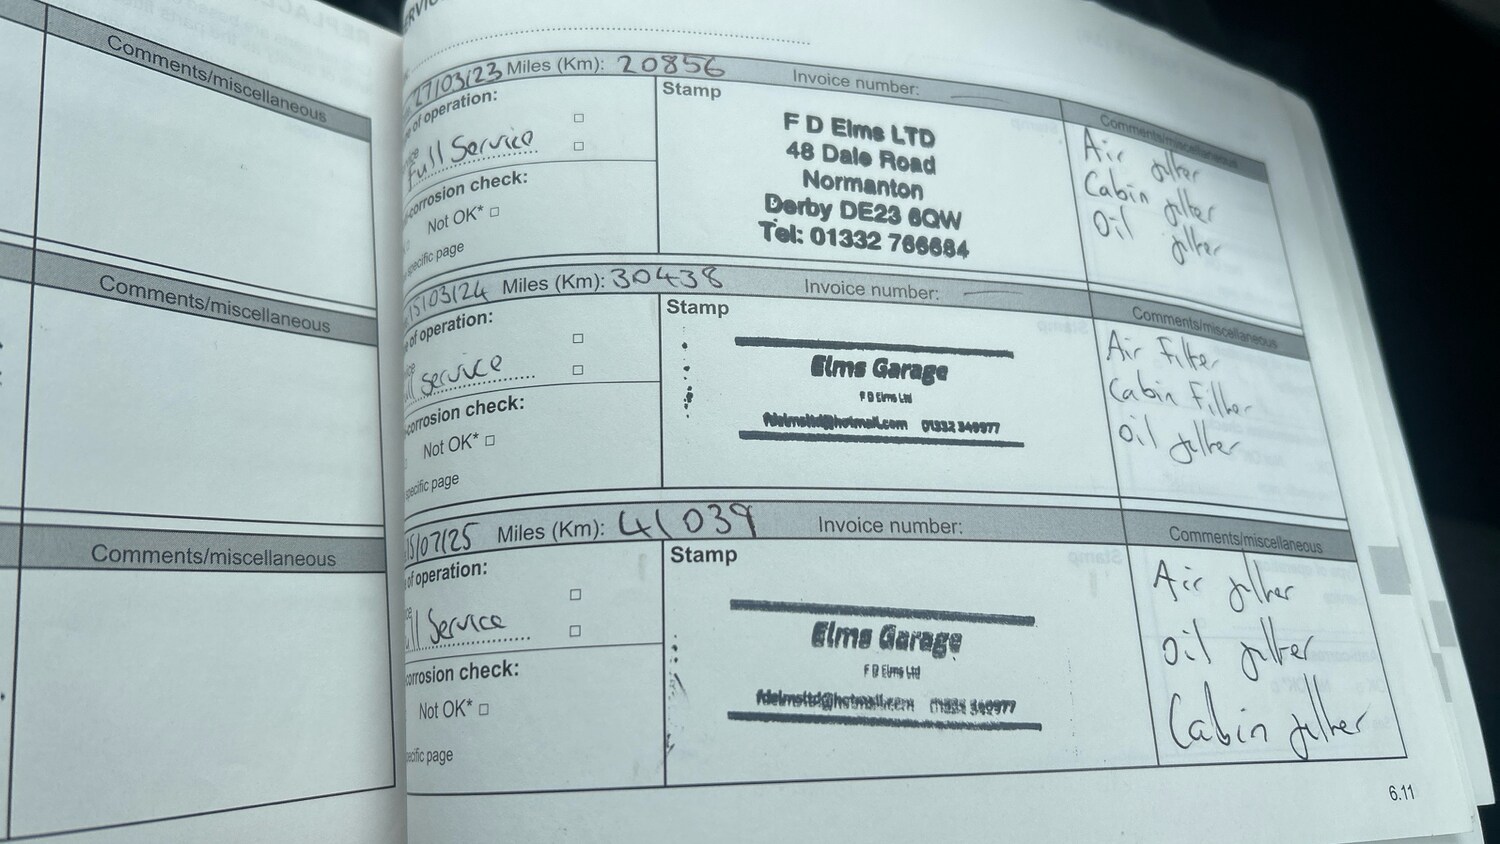 Comments/miscellaneous
Comments/miscellaneous
Comments/miscellaneous
27/03/23 Miles (Km): 20856 Invoice number:
of operation:
Full Service
corrosion check:
Not OK*
specific page
Stamp
F D Elms LTD
48 Dale Road
Normanton
Derby DE23 6QW
Tel: 01332 766684
Comments/miscellaneous
Air filter
Cabin filter
Oil filter
15/03/24 Miles (Km): 30438 Invoice number:
of operation:
service
corrosion check:
Not OK*
specific page
Stamp
Elms Garage
F D Elms Ltd
fdelmsltd@hotmail.com 01332 349977
Comments/miscellaneous
Air Filter
Cabin Filter
Oil filter
15/07/25 Miles (Km): 41039 Invoice number:
of operation:
Service
corrosion check:
Not OK*
page
Stamp
Elms Garage
F D Elms Ltd
fdelmsltd@hotmail.com
Comments/miscellaneous
Air filter
Oil filter
Cabin filter
6.11